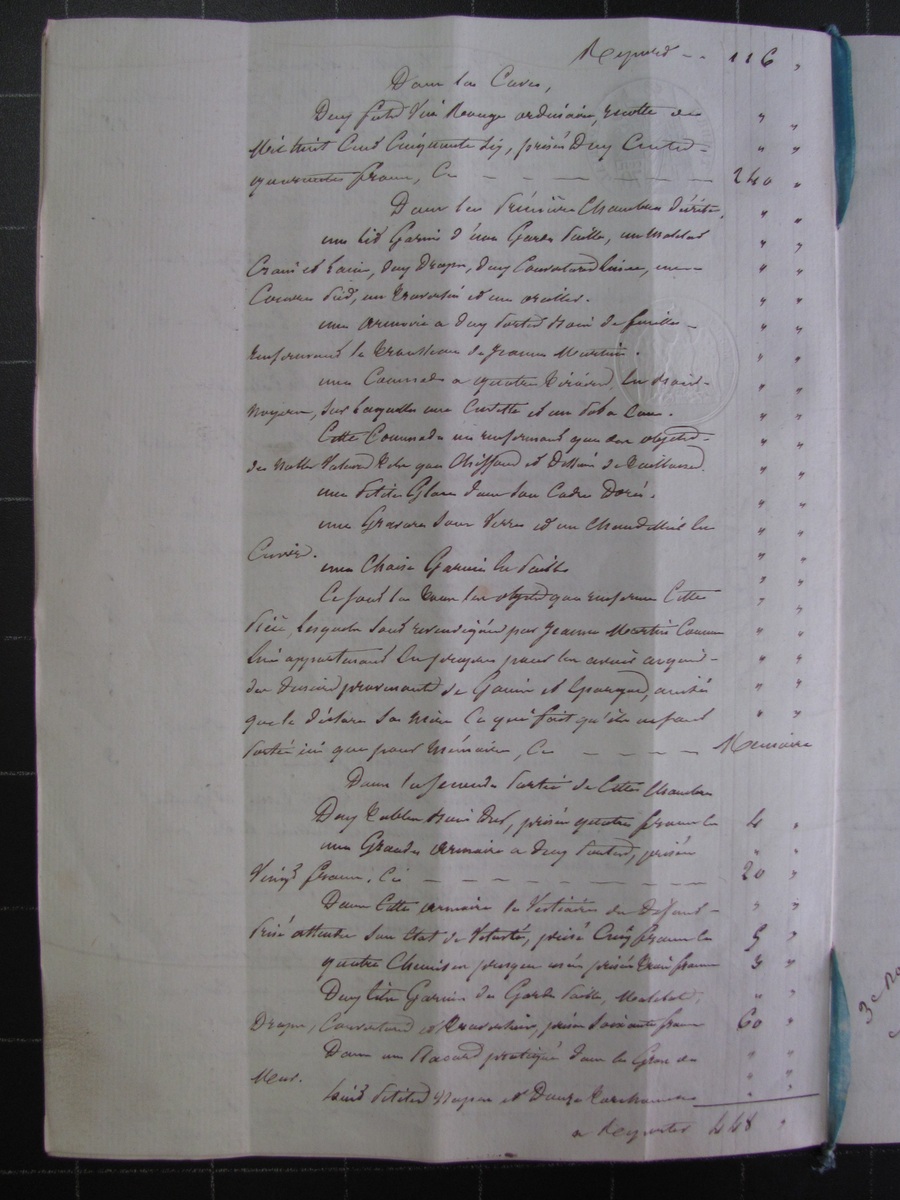 Report -- 116 "
Dans la Cave,
Deux futs Vin Rouge ordinaire, recolte de
Mil huit Cent Cinquante Six, prisés Deux Cents
quarante francs, Ci — — — — — — 240 "
Dans la Première Chambre décrite,
un lit Garni d'une Garde paille, un Matelas
Crain et Laine, deux Draps, deux Couvertures laine, un
Couvre pied, un traversin et un oreiller.
une armoire a deux portes bois de
renfermant le trousseau de Jeanne Martin.
une Commode a quatre tiroirs, en bois
Noyer, sur laquelle une Cuvette et un pot a Eau.
Cette Commode ne renfermant que des objets
de nulle Valeur tels que Chiffons et
une petite Glace dans son Cadre Doré.
une Gravure sous Verre et un Chandelier en
Cuivre.
une Chaise Garnie en paille
Ce sont la tous les objets que renferme Cette
pièce, lesquels sont revendiqués par Jeanne Martin Comme
lui appartenant en propre pour les avoir acquis
de deniers provenants de Gains et Epargnes, ainsi
que le déclare Sa Mère Ce qui fait qu'ils ne sont
portés ici que pour Mémoire, Ci — — — — Memoire
Dans la seconde partie de Cette Chambre
Deux tables bois Dur, prisées quatre francs Ci 4 "
une Grande armoire a deux portes, prisée
Vingt francs, Ci — — — — — — — 20 "
Dans Cette armoire le Vestiaire du Defunt
Prisé attendu Son Etat de Vetusté, prisé Cinq francs Ci 5 "
quatre Chemises presque usées prisées trois francs 3 "
Deux lits Garnis de Garde paille, Matelas,
Draps, Couvertures et traversins, prisés soixante francs 60 "
Dans un Placard pratiqué dans le Gros du
Mur.
huit petites Nappes et Douze torchons
a Reporter 448 "